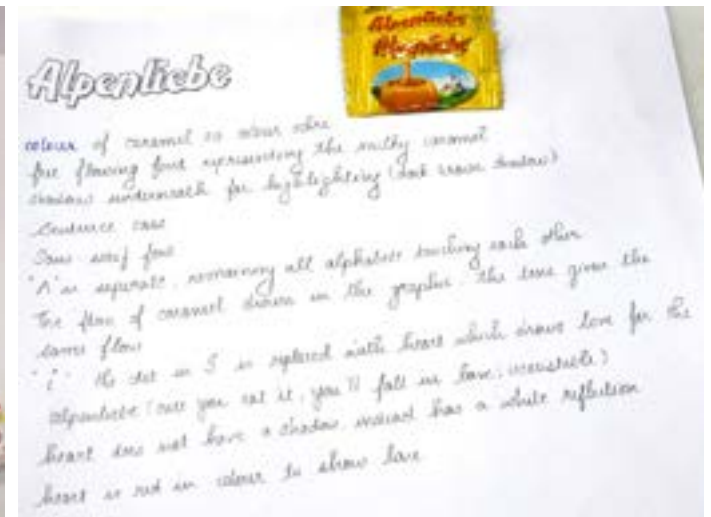 Alpenliebe
Alpenliebe
Alpenliebe
colour of caramel as colour
free flowing font representing the milky caramel
shadow underneath for highlighting (dark brown shadow)
Sentence case
Sans serif font
"A" is separate, remaining all alphabets touching each other
The flow of caramel shown in the graphic the tone gives the
same flow
"i" the dot in is replaced with heart which shows love for the
alpenliebe (once you eat it, you'll fall in love, irresistible)
heart does not have a shadow, instead has a white reflection
heart is red in colour to show love